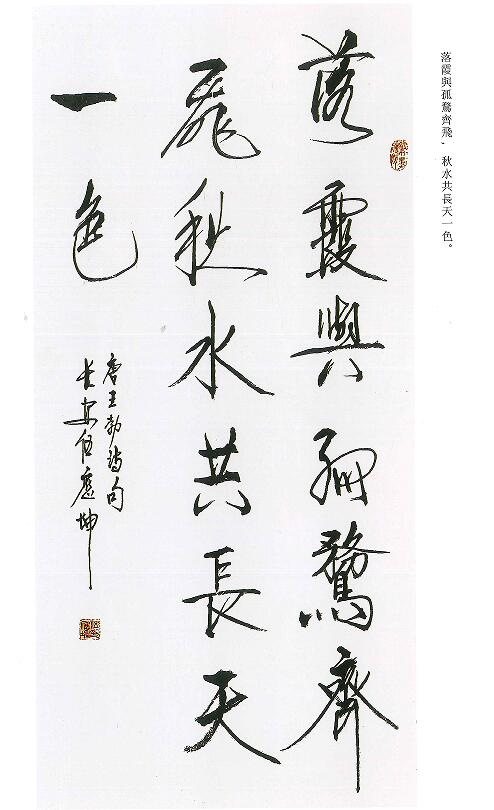 落霞與孤鶩齊飛，秋水共長天一色。
落霞與孤鶩齊
飛秋水共長天
一色
唐王勃詩句
長安伍應坤